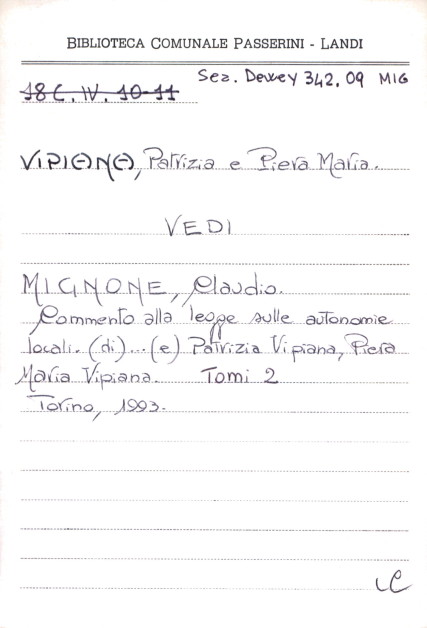 BIBLIOTECA COMUNALE PASSERINI - LANDI
Sez. Dewey 342.09 MIG
18 C. IV. 10-11
VIPIANA, Patrizia e Piera Maria.
VEDI
MIGNONE, Claudio.
Commento alla legge sulle autonomie
locali. (di)...(e) Patrizia Vipiana, Piera
Maria Vipiana. Tomi 2
Torino, 1993.